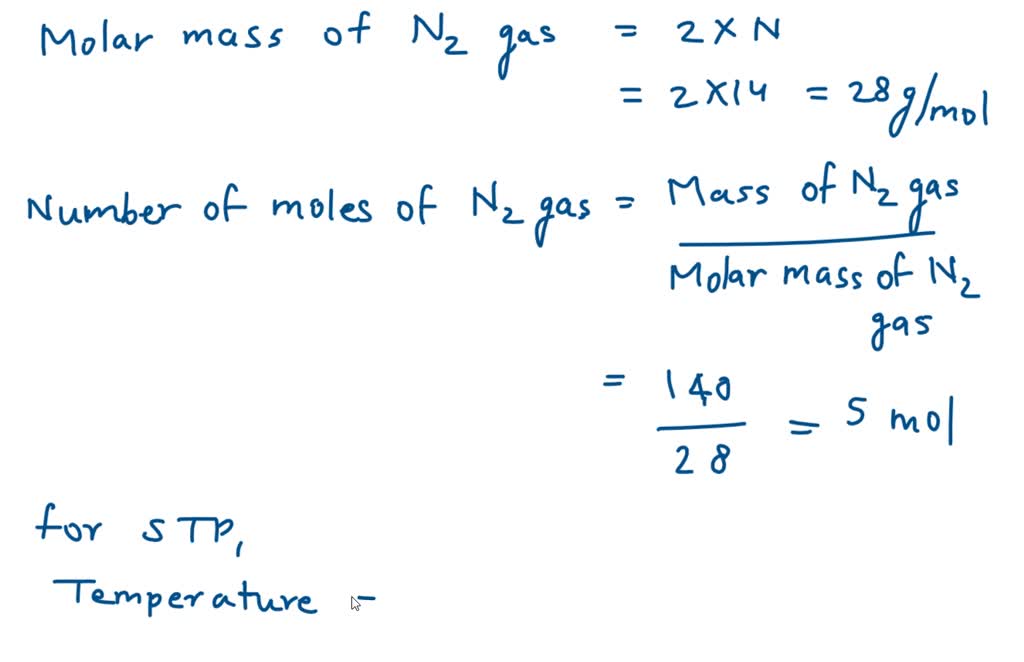 Molar mass of N₂ gas = 2 × N
= 2 × 14 = 28 g/mol
Number of moles of N₂ gas = Mass of N₂ gas
Molar mass of N₂
gas
= 140
28
= 5 mol
for STP,
Temperature -